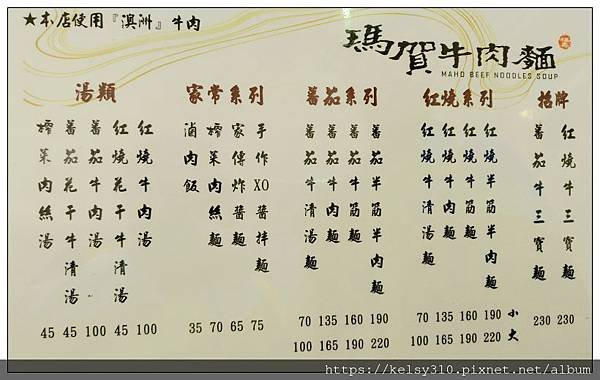 ★本店使用『澳洲』牛肉
瑪賀牛肉麵
MAHO BEEF NOODLES SOUP
招牌
紅燒牛三寶麵
蕃茄牛三寶麵
230 230
紅燒系列
紅燒半筋半肉麵
紅燒牛筋麵
紅燒牛肉麵
紅燒牛清湯麵
70 135 160 190 小
100 165 190 220 大
蕃茄系列
蕃茄半筋半肉麵
蕃茄牛筋麵
蕃茄牛肉麵
蕃茄牛清湯麵
70 135 160 190
100 165 190 220
家常系列
手作XO醬拌麵
家傳炸醬麵
榨菜肉絲麵
滷肉飯
35 70 65 75
湯類
紅燒牛肉湯
紅燒花干牛清湯
蕃茄牛肉湯
蕃茄花干牛清湯
榨菜肉絲湯
45 45 100 45 100
https://kelsy310.pixnet.net/album